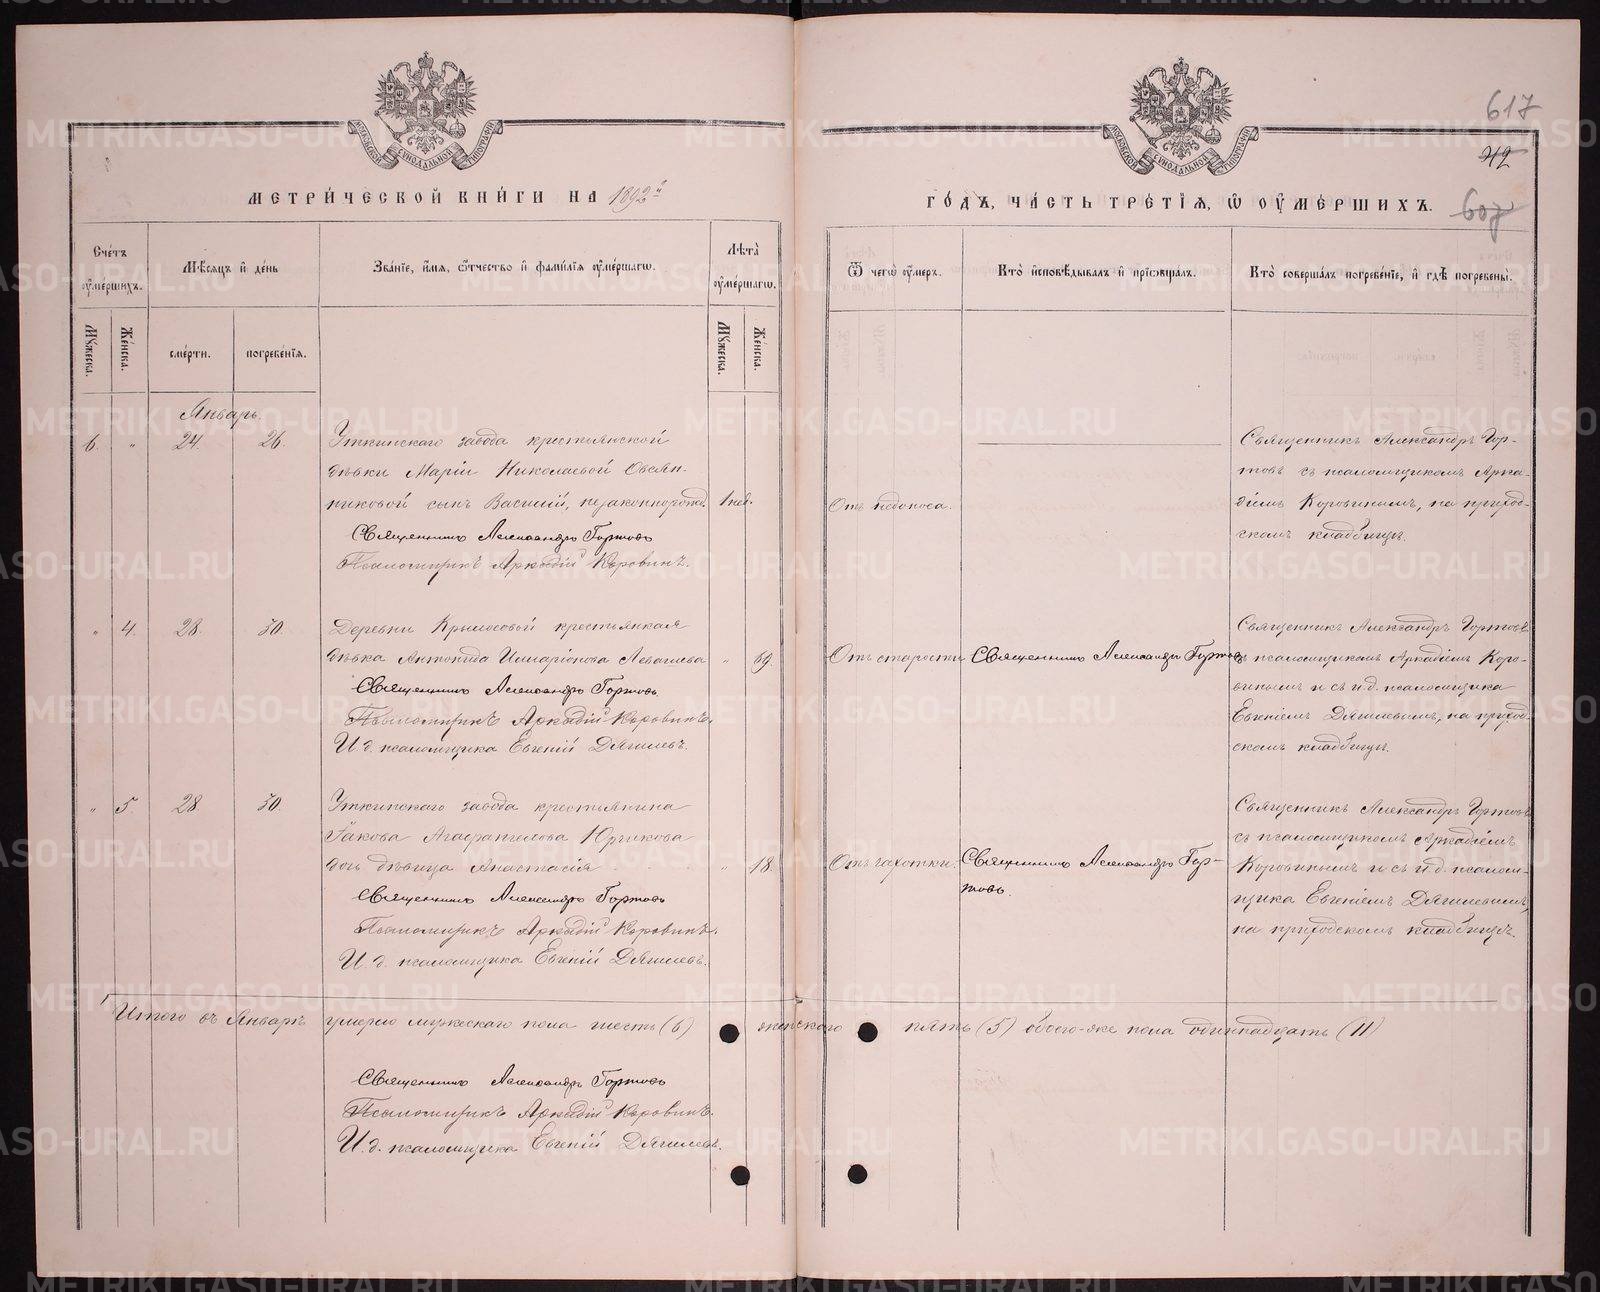 617
42
607
МЕТРИ́ЧЕСКОЙ КНИ́ГИ НА 1892й
ГО́ДЪ, ЧА́СТЬ ТРЕ́ТІЯ, Ѡ ОУ҆МЕ́РШИХЪ.
Сче́тъ оу҆ме́ршихъ.
Мѣ́сяцъ и҆ де́нь
Зва́нїе, и҆́мя, ѻ҆́тчество и҆ фами́лїя оу҆ме́ршагѡ.
Лѣ́та оу҆ме́ршагѡ.
Ѿ чегѡ̀ оу҆́меръ.
Кто̀ и҆сповѣ́дывалъ и҆ прїѡбща́лъ.
Кто̀ соверша́лъ погребе́нїе, и҆ гдѣ̀ погребены̀.
Му́жеска.
Же́нска.
сме́рти.
погребе́нїя.
Му́жеска.
Же́нска.
Январь.
6. " 24. 26.
Уткинскаго завода крестьянской
дѣвки Маріи Николаевой Овсян-
никовой сынъ Василій, незаконнорожд. 1 нед.
Священникъ Александръ Гортовъ
Псаломщикъ Аркадій Коровинъ.
Отъ недоноса.
Священникъ Александръ Гор-
товъ съ псаломщикомъ Арка-
діемъ Коровинымъ, на приход-
скомъ кладбищѣ.
" 4. 28. 30.
Деревни Крылосовой крестьянская
дѣвка Антонида Иларіонова Левашева " 69.
Священникъ Александръ Гортовъ
Псаломщикъ Аркадій Коровинъ.
И. д. псаломщика Евгеній Дягилевъ.
Отъ старости
Священникъ Александръ Гортовъ
Священникъ Александръ Гортовъ
съ псаломщикомъ Аркадіемъ Коро-
винымъ и съ и. д. псаломщика
Евгеніемъ Дягилевымъ, на приход-
скомъ кладбищѣ.
" 5. 28 30.
Уткинскаго завода крестьянина
Іакова Агафангелова Юрчикова
дочь дѣвица Анастасія " 18.
Священникъ Александръ Гортовъ
Псаломщикъ Аркадій Коровинъ.
И. д. псаломщика Евгеній Дягилевъ.
Отъ чахотки.
Священникъ Александръ Гор-
товъ.
Священникъ Александръ Гортовъ
съ псаломщикомъ Аркадіемъ
Коровинымъ и съ и. д. псалом-
щика Евгеніемъ Дягилевымъ,
на приходскомъ кладбищѣ.
Итого въ Январѣ умерло мужескаго пола шесть (6) женскаго пять (5) обоего-же пола одиннадцать (11)
Священникъ Александръ Гортовъ
Псаломщикъ Аркадій Коровинъ.
И. д. псаломщика Евгеній Дягилевъ.